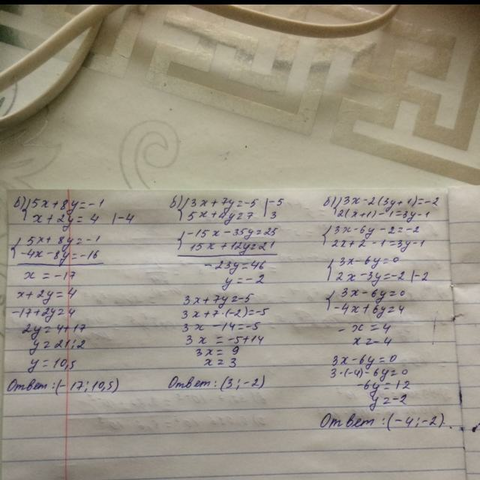 б) { 5x+8y=-1
x+2y=4 |-4
{ 5x+8y=-1
-4x-8y=-16
x=-17
x+2y=4
-17+2y=4
2y=4+17
y=21:2
y=10,5
Ответ: (-17; 10,5)
б) { 3x+7y=-5 |-5
5x+4y=7 3
{ -15x-35y=25
15x+12y=21
-23y=46
y=-2
3x+7y=-5
3x+7·(-2)=-5
3x-14=-5
3x=-5+14
3x=9
x=3
Ответ: (3; -2)
б) { 3x-2(3y+1)=-2
2(x+1)-1=3y-1
{ 3x-6y-2=-2
2x+2-1=3y-1
{ 3x-6y=0
2x-3y=-2 |-2
{ 3x-6y=0
-4x+6y=4
-x=4
x=-4
3x-6y=0
3·(-4)-6y=0
-6y=12
y=-2
Ответ: (-4; -2)